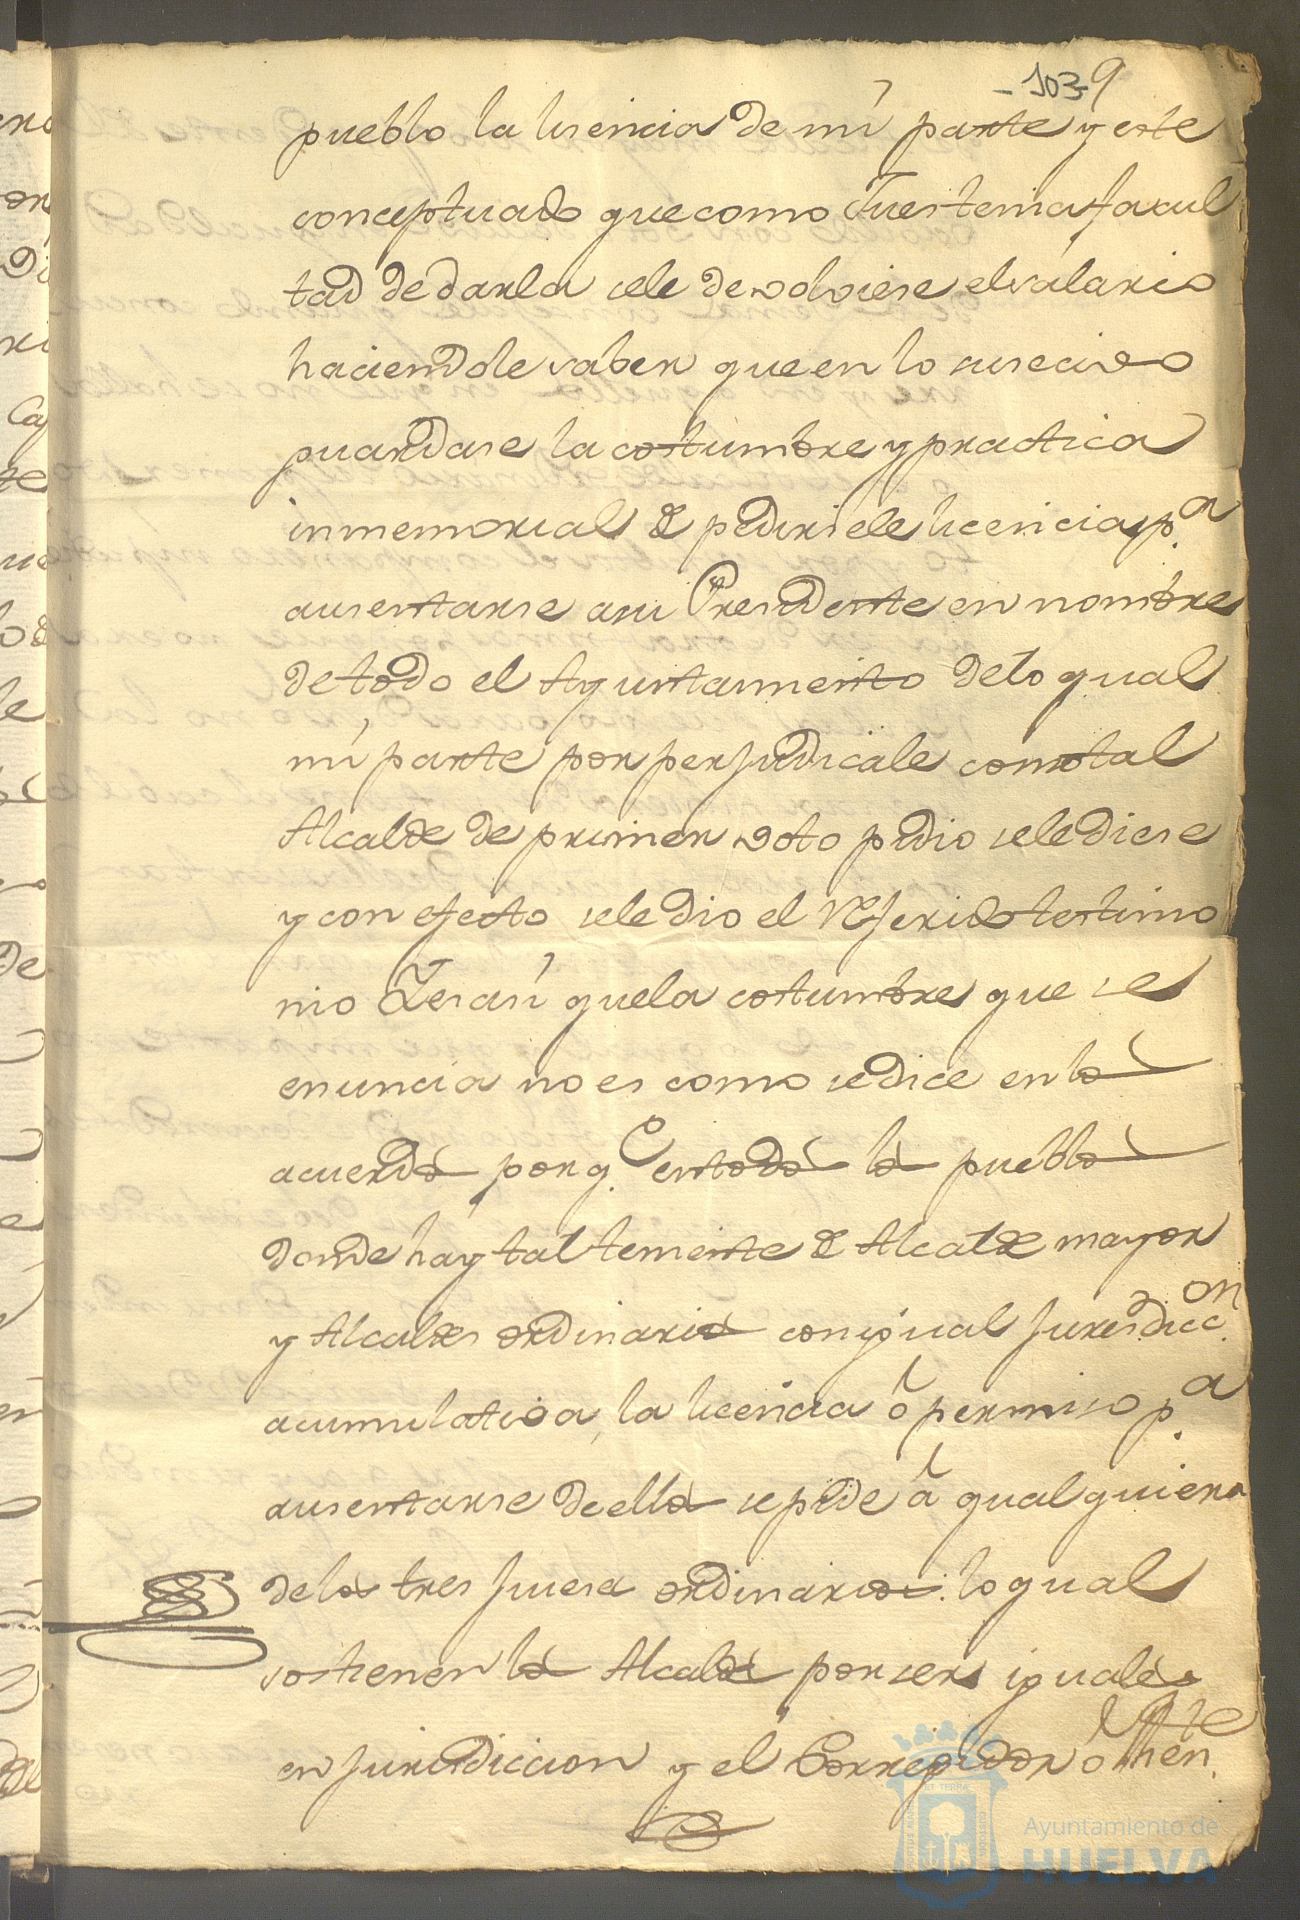 -103- 9
pueblo la lisencia de mi parte y este
conceptuado que como Jues tenia facul
tad de darla sele devolviese el salario
haciendole saver que en lo susecivo
guardase la costumbre y practica
inmemorial de pedirsele licencia p.a
ausentarse a su Presidente en nombre
de todo el Ayuntamiento de lo qual
mi parte por perjudicale como tal
Alcalde de primer voto pidio sele diese
y con efecto sele dio el referido testimo
nio Y es asi que la costumbre que se
enuncia no es como se dice en los
acuerdos porq.e en todos los pueblos
donde hay tal teniente de Alcalde mayor
y Alcaldes ordinarios con igual Jurisdicc.on
acumulativa, la licencia ó permiso p.a
ausentarse de ellos se pide á qualquiera
de los tres Jueses ordinarios. lo qual
sostienen los Alcaldes por ser iguales
en Jurisdiccion y el Corregidor ó Then.te
Ayuntamiento de
HUELVA